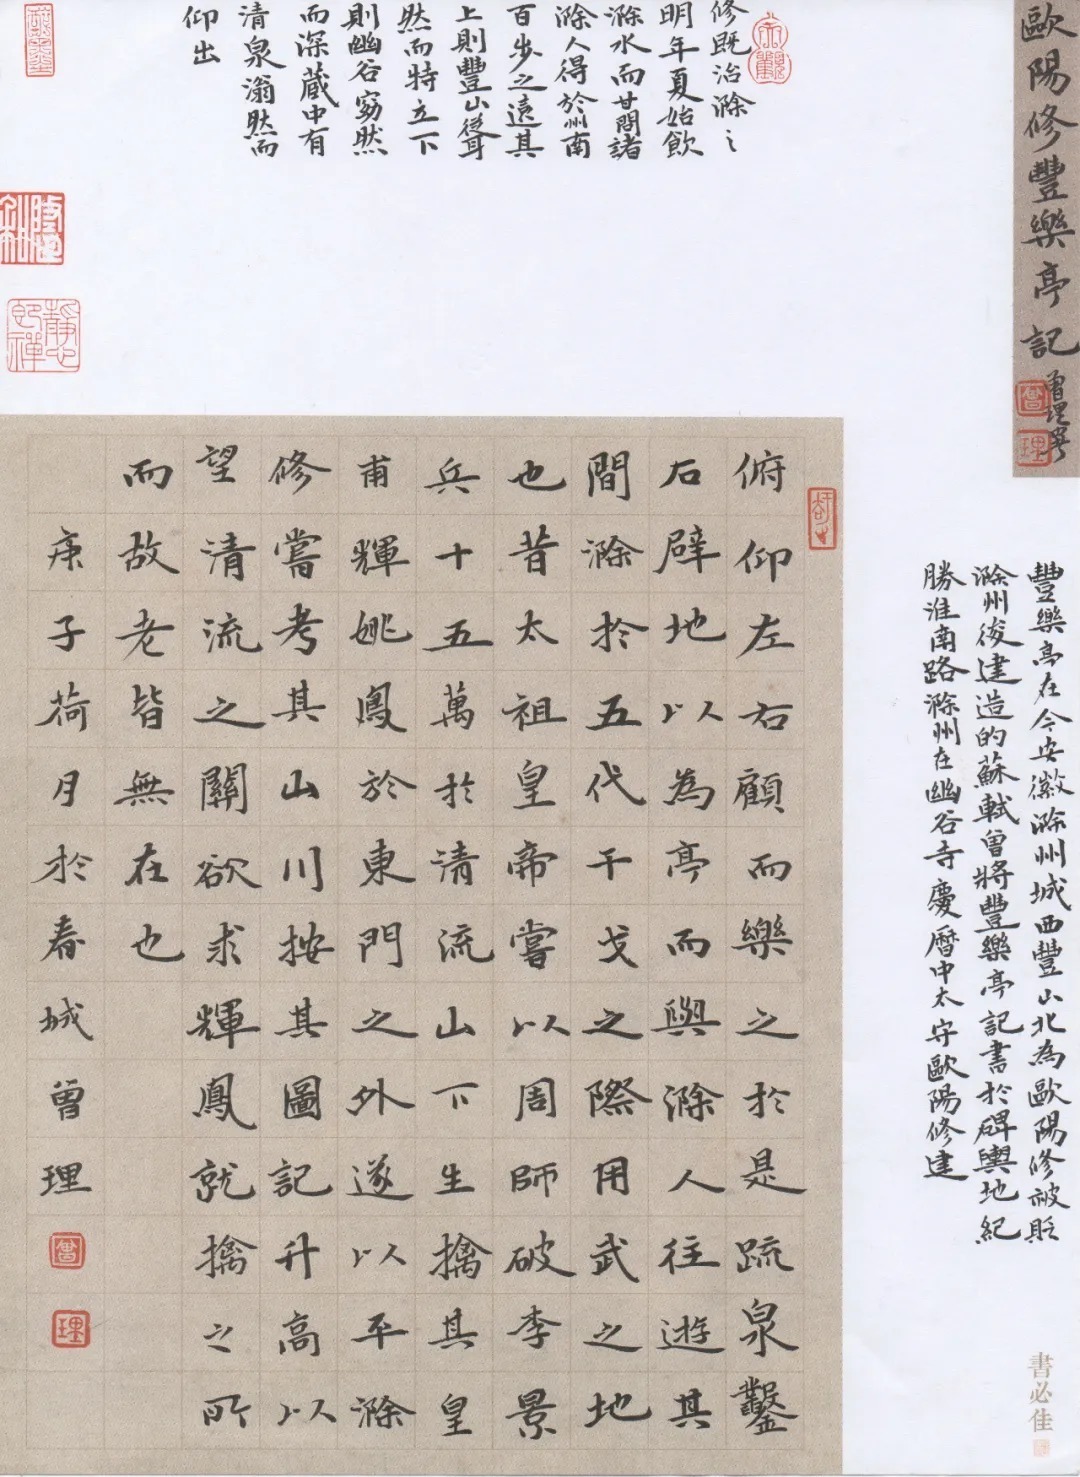 歐陽修豐樂亭記
曾理書
曾
理
修既治滁之
明年夏始飲
滁水而甘問諸
滁人得於州南
百步之遠其
上則豐山聳
然而特立下
則幽谷窈然
而深蔵中有
清泉滃然而
仰出
豐樂亭在今安徽滁州城西豐山北為歐陽修被貶
滁州後建造的蘇軾曾將豐樂亭記書於碑輿地紀
勝淮南路滁州在幽谷寺慶曆中太守歐陽修建
俯仰左右顧而樂之於是疏泉鑿
石辟地以為亭而與滁人往遊其
間滁於五代干戈之際用武之地
也昔太祖皇帝嘗以周師破李景
兵十五萬於清流山下生擒其皇
甫輝姚鳳於東門之外遂以平滁
修嘗考其山川按其圖記升高以
望清流之關欲求輝鳳就擒之所
而故老皆無在也
庚子荷月於春城曾理
曾
理
書必佳